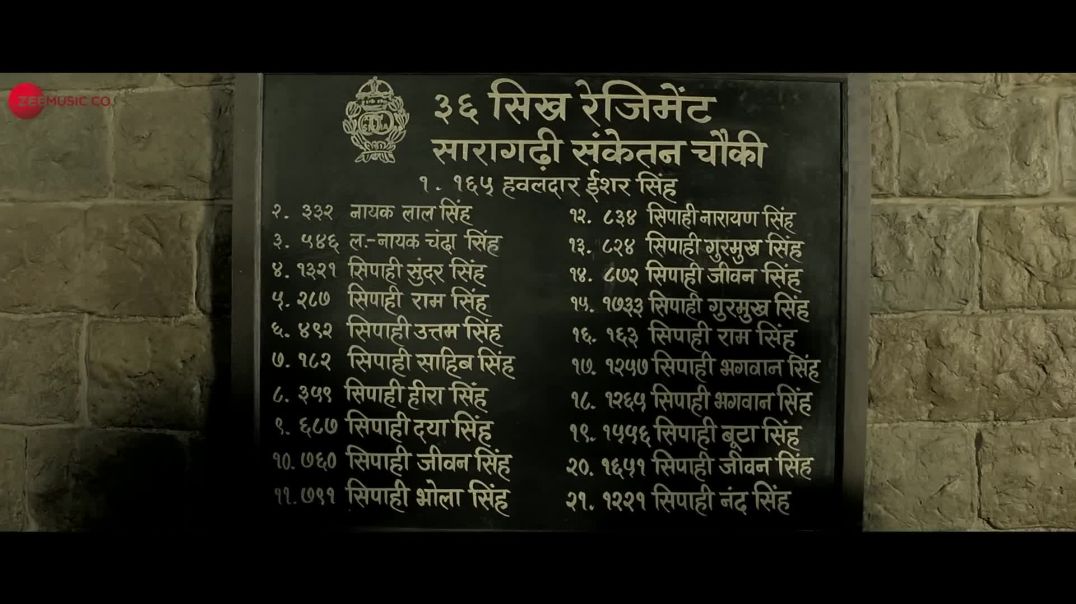 ZEE MUSIC CO.
३६ सिख रेजिमेंट
सारागढ़ी संकेतन चौकी
१. १६५ हवलदार ईशर सिंह
२. ३३२ नायक लाल सिंह
३. ५४६ ल.-नायक चंढ़ा सिंह
४. १३२१ सिपाही सुंदर सिंह
५. २८७ सिपाही राम सिंह
६. ४९२ सिपाही उत्तम सिंह
७. १८२ सिपाही साहिब सिंह
८. ३५९ सिपाही हीरा सिंह
९. ६८७ सिपाही दया सिंह
१०. ७६० सिपाही जीवन सिंह
११. ७९१ सिपाही भोला सिंह
१२. ८३४ सिपाही नारायण सिंह
१३. ८२४ सिपाही गुरमुख सिंह
१४. ८७२ सिपाही जीवन सिंह
१५. १७३३ सिपाही गुरमुख सिंह
१६. १६३ सिपाही राम सिंह
१७. १२५७ सिपाही भगवान सिंह
१८. १२६५ सिपाही भगवान सिंह
१९. १५५६ सिपाही बूटा सिंह
२०. १६५१ सिपाही जीवन सिंह
२१. १२२१ सिपाही नंद सिंह